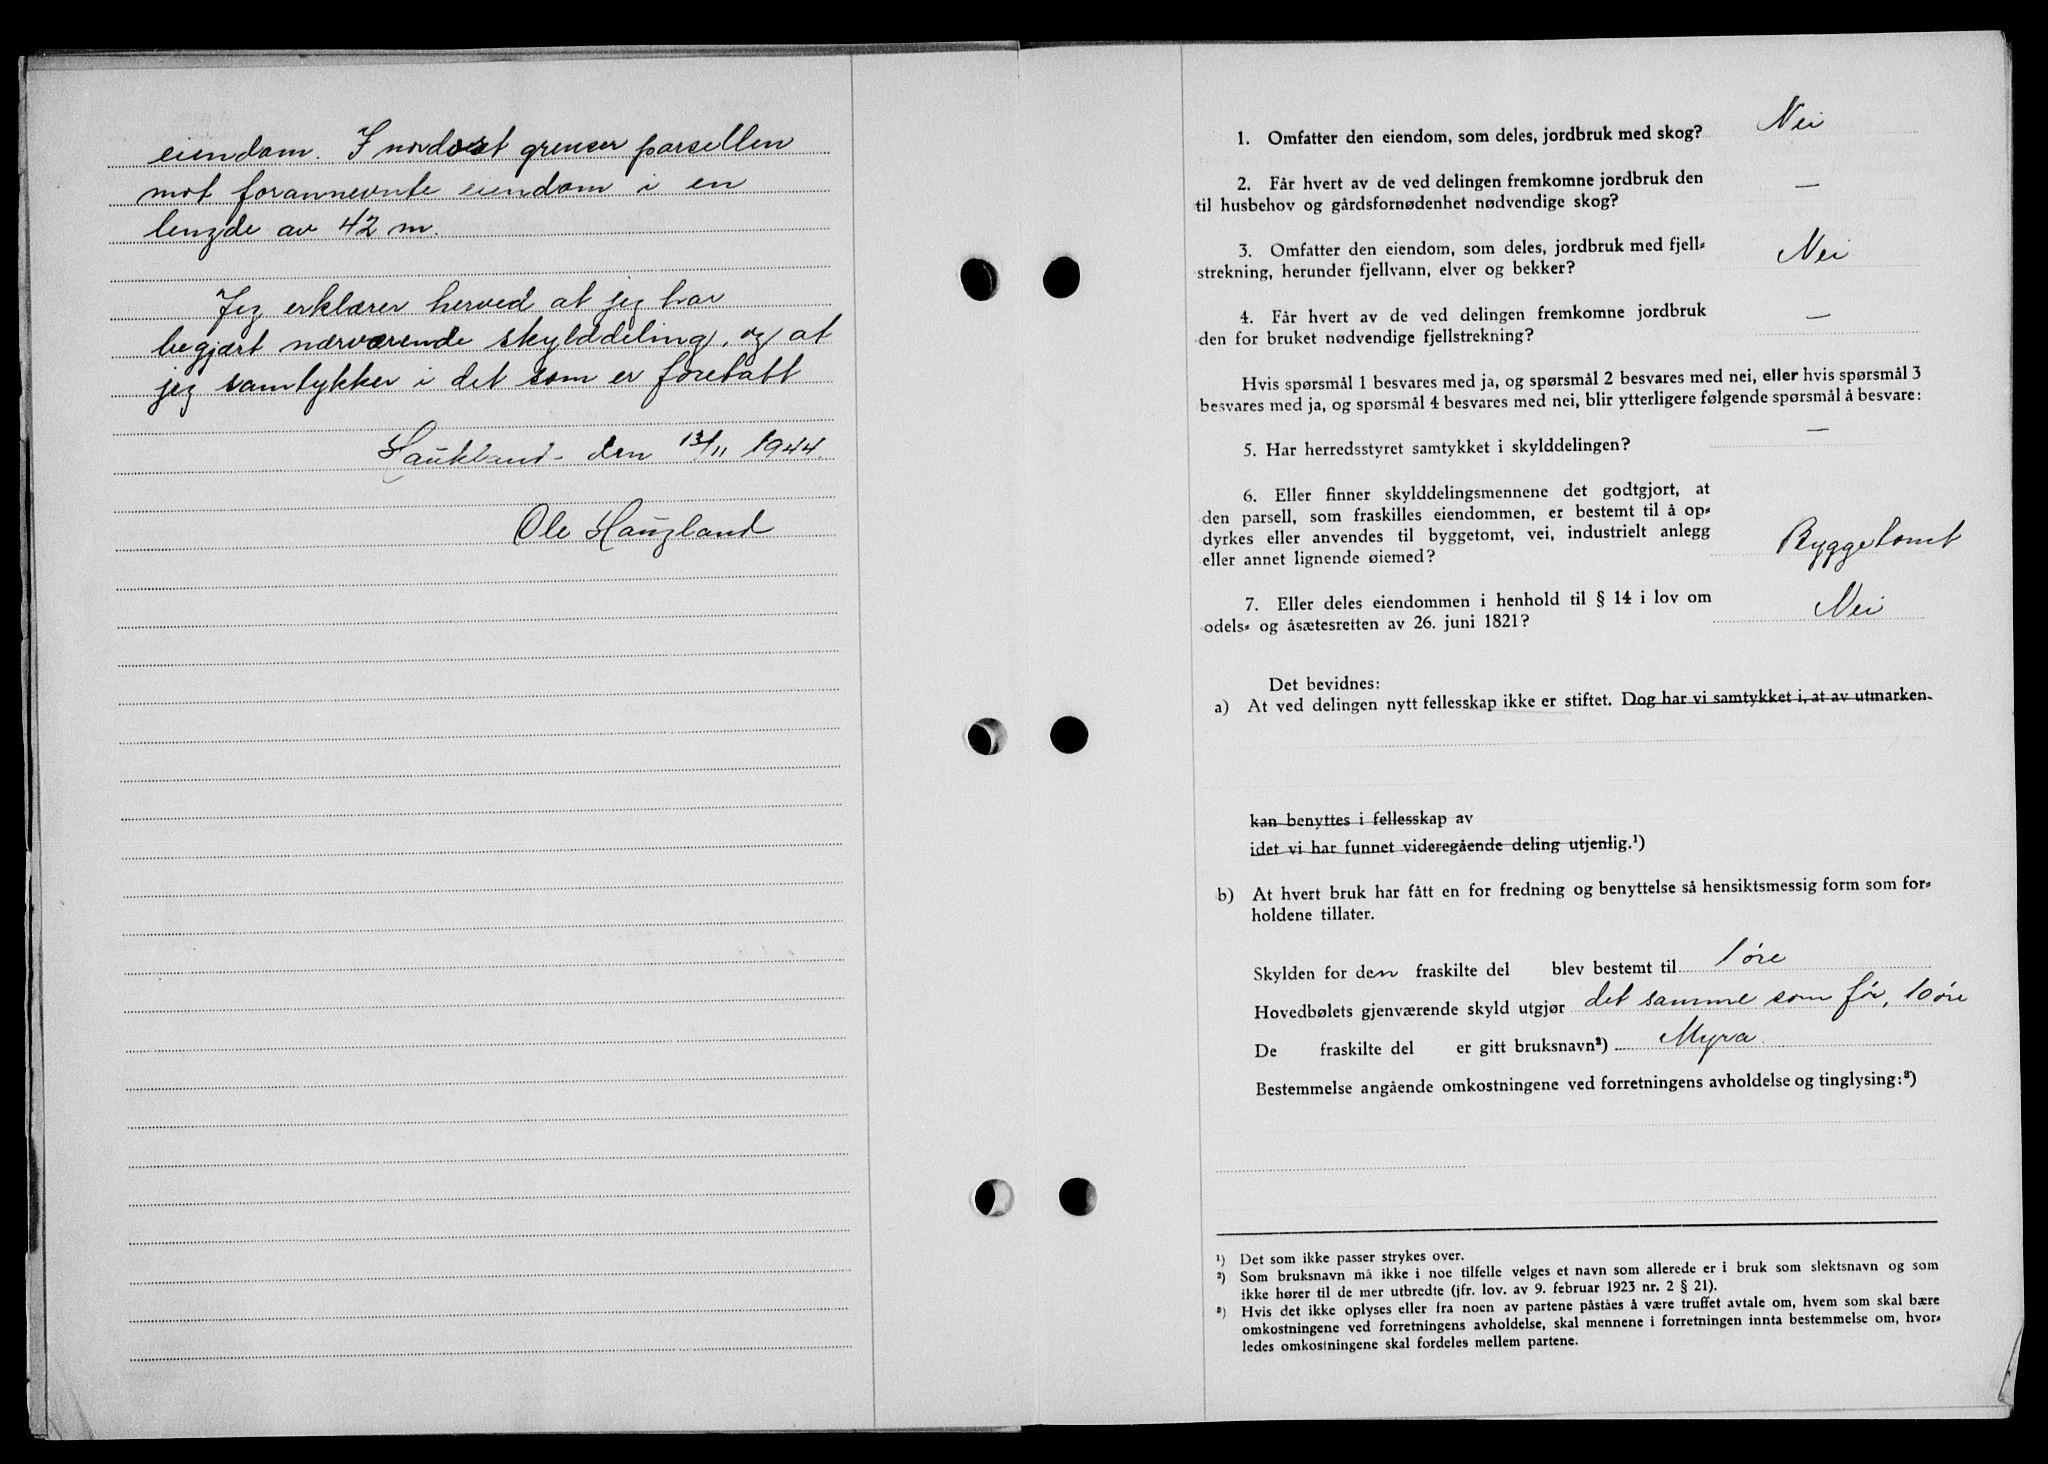 eiendom. I nordøst grenser parsellen
mot forannevnte eiendom i en
lengde av 42 m.
Jeg erklærer herved at jeg har
begjært nærværende skylddeling, og at
jeg samtykker i det som er foretatt
Haukland den 13/11 1944.
Ole Haugland
1. Omfatter den eiendom, som deles, jordbruk med skog? Nei
2. Får hvert av de ved delingen fremkomne jordbruk den
til husbehov og gårdsfornødenhet nødvendige skog? —
3. Omfatter den eiendom, som deles, jordbruk med fjell-
strekning, herunder fjellvann, elver og bekker? Nei
4. Får hvert av de ved delingen fremkomne jordbruk
den for bruket nødvendige fjellstrekning? —
Hvis spørsmål 1 besvares med ja, og spørsmål 2 besvares med nei, eller hvis spørsmål 3
besvares med ja, og spørsmål 4 besvares med nei, blir ytterligere følgende spørsmål å besvare:
5. Har herredsstyret samtykket i skylddelingen? —
6. Eller finner skylddelingsmennene det godtgjort, at
den parsell, som fraskilles eiendommen, er bestemt til å op-
dyrkes eller anvendes til byggetomt, vei, industrielt anlegg
eller annet lignende øiemed? Byggetomt
7. Eller deles eiendommen i henhold til § 14 i lov om
odels- og åsætesretten av 26. juni 1821? Nei
Det bevidnes:
a) At ved delingen nytt fellesskap ikke er stiftet. Dog har vi samtykket i, at av utmarken
kan benyttes i fellesskap av
idet vi har funnet videregående deling utjenlig.¹)
b) At hvert bruk har fått en for fredning og benyttelse så hensiktsmessig form som for-
holdene tillater.
Skylden for den fraskilte del blev bestemt til 1 øre
Hovedbølets gjenværende skyld utgjør det samme som før, 10 øre
De fraskilte del er gitt bruksnavn²) Myra
Bestemmelse angående omkostningene ved forretningens avholdelse og tinglysing:³)
¹) Det som ikke passer strykes over.
²) Som bruksnavn må ikke i noe tilfelle velges et navn som allerede er i bruk som slektsnavn og som
ikke hører til de mer utbredte (jfr. lov. av 9. februar 1923 nr. 2 § 21).
³) Hvis det ikke oplyses eller fra noen av partene påståes å være truffet avtale om, hvem som skal bære
omkostningene ved forretningens avholdelse, skal mennene i forretningen innta bestemmelse om, hvor-
ledes omkostningene skal fordeles mellem partene.